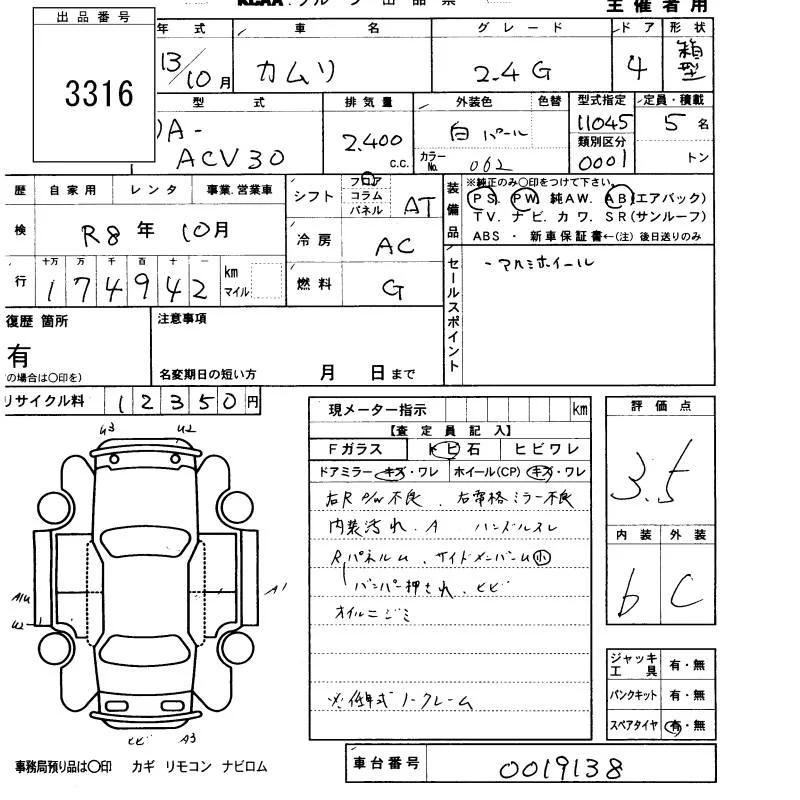 KCAA グループ 出品票
主催者用
出品番号
3316
年式 車名 グレード ドア 形状
13/10月 カムリ 2.4G 4 箱型
型式 排気量 外装色 色替 型式指定 定員・積載
DA-ACV30 2.400 c.c. 白パール 11045 5名
カラーNo. 062 類別区分 0001 トン
歴 自家用 レンタ 事業.営業車
シフト フロア コラム パネル AT
装備品 ※純正のみ○印をつけて下さい。
PS. PW. 純AW. AB(エアバック)
TV. ナビ. カワ. SR(サンルーフ)
ABS ・ 新車保証書←(注) 後日送りのみ
検 R8年 10月
冷房 AC
行 十万 万 千 百 十 一
174942 km マイル
燃料 G
セールスポイント
・アルミホイール
復歴箇所
有
の場合は○印を)
注意事項
名変期日の短い方 月 日まで
リサイクル料 12350円
現メーター指示 km
【査定員記入】
Fガラス トビ石 ヒビワレ
ドアミラー キズ・ワレ ホイール(CP) キズ・ワレ
右R P/W不良、右常格ミラー不良
内装汚れ、A ハンドルスレ
RパネルM、サイドメンバーM小
バンパー押され、ヒビ
オイルニジミ
※低年式ノークレーム
評価点
3.5
内装 外装
b C
ジャッキ工具 有・無
パンクキット 有・無
スペアタイヤ 有・無
U3 U2
A1
U2
ヒビ A3
事務局預り品は○印 カギ リモコン ナビロム
車台番号 0019138